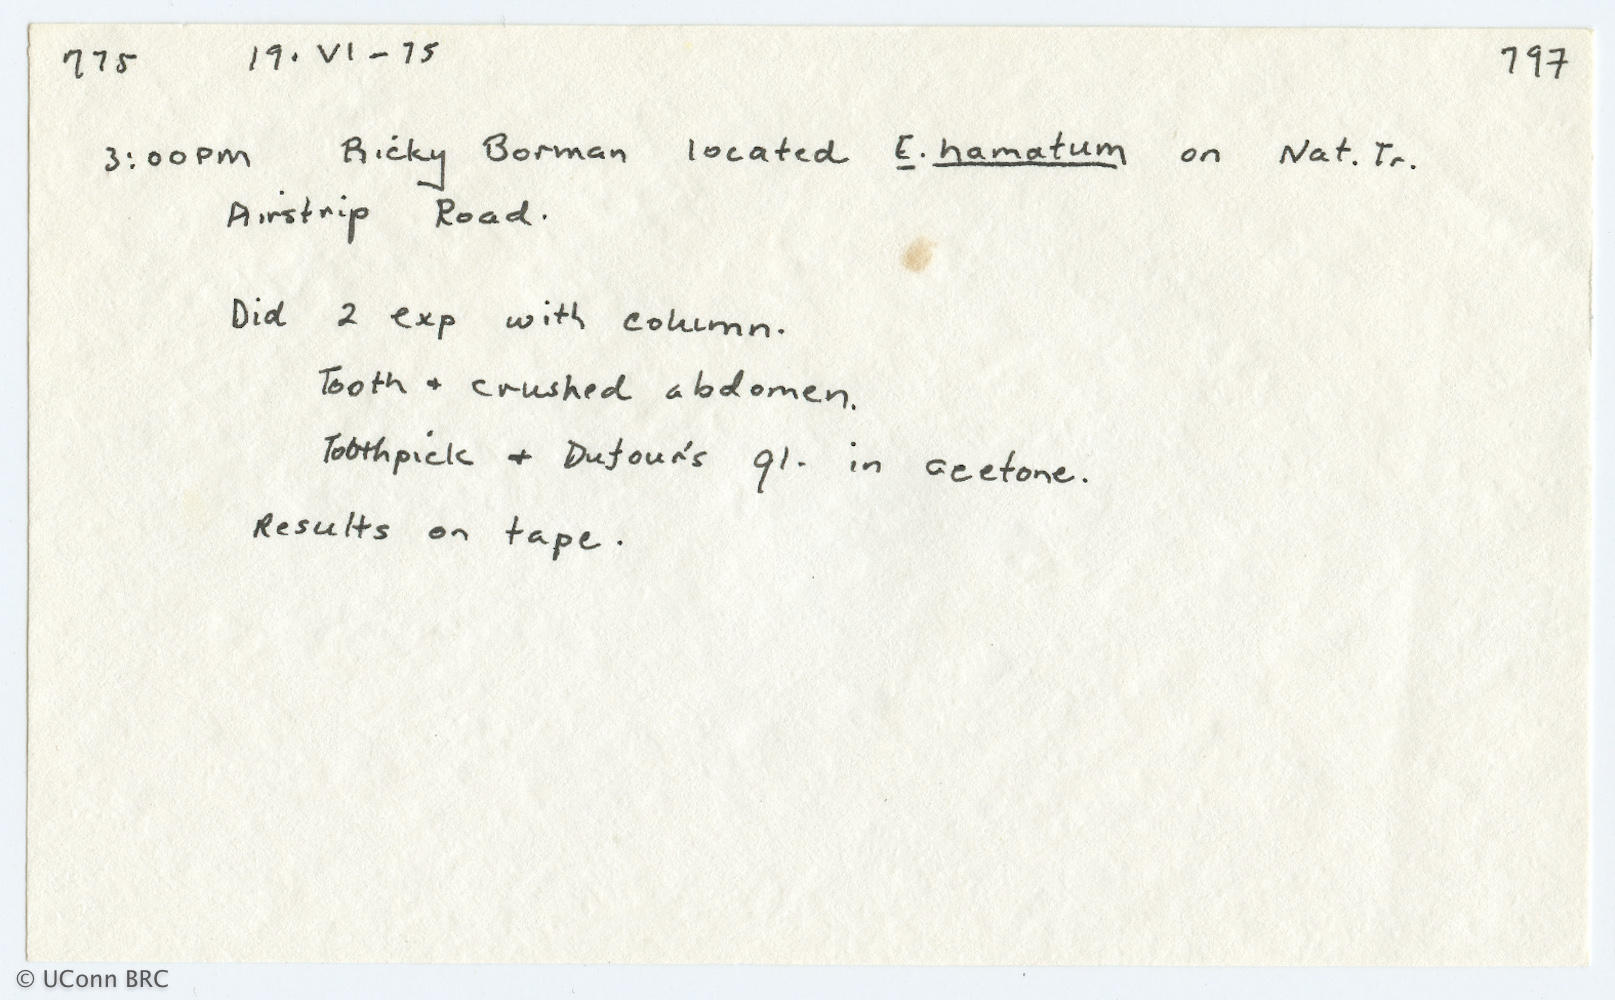 775 19. VI - 75 797
3:00PM Ricky Borman located E. hamatum on Nat. Tr.
Airstrip Road.
Did 2 exp with column.
Tooth + crushed abdomen.
Toothpick + Dufour's gl. in acetone.
Results on tape.
© UConn BRC